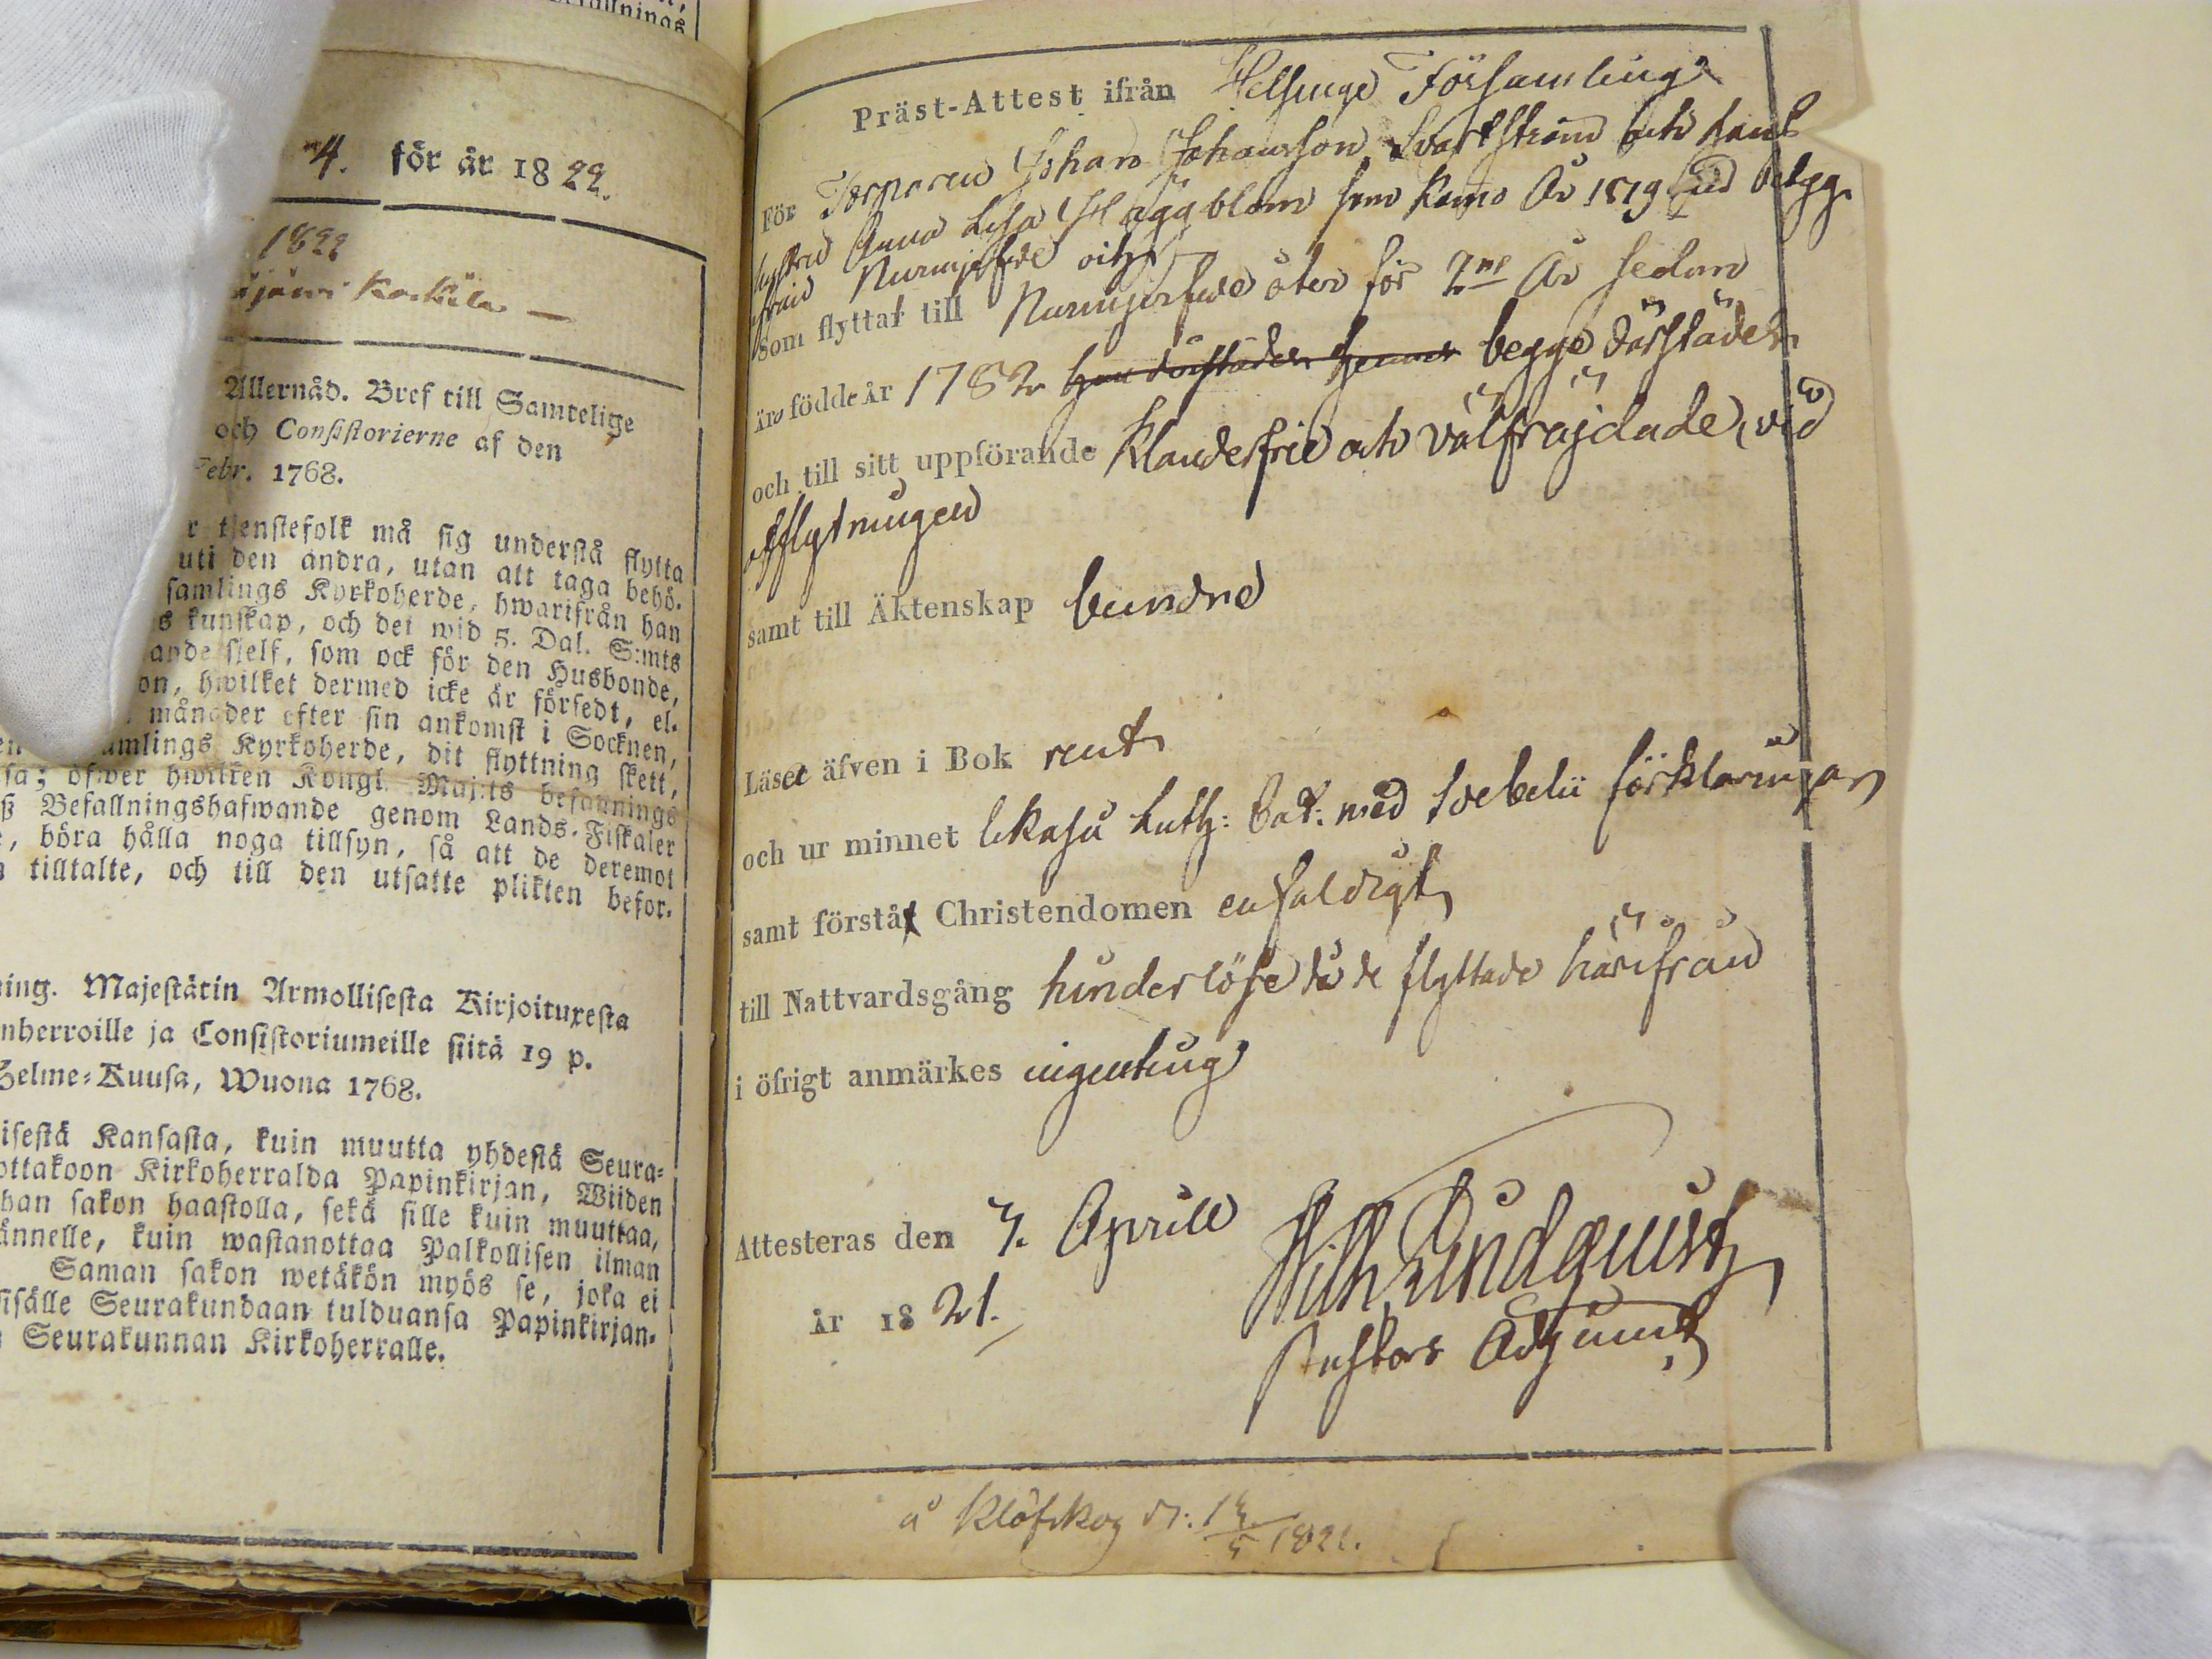 fallnings
4. för år 1822.
1822
järwi Karkila
Allernåd. Bref till Samtelige
och Consistorierne af den
Febr. 1768.
r tjenstefolk må sig understå flytta
uti den andra, utan att taga behö-
samlings Kyrkoherde, hwarifrån han
s kunskap, och det wid 5. Dal. S:mts
ande sjelf, som ock för den Husbonde,
on, hwilket dermed icke är försedt, el-
månader efter sin ankomst i Socknen,
amlings Kyrkoherde, dit flyttning skett,
sa; öfwer hwilken Kongl. Maj:ts befallnings
ß Befallningshafwande genom Lands-Fiskaler
, böra hålla noga tillsyn, så att de deremot
tilltalte, och till den utsatte plikten befor-
ing. Majestätin Armollisesta Kirjoituxesta
nherroille ja Consistoriumeille siitä 19 p.
Helme-Kuusa, Wuona 1768.
isestä Kansasta, kuin muutta yhdestä Seura-
ottakoon Kirkoherralda Papinkirjan, Wiiden
han sakon haastolla, sekä sille kuin muuttaa,
ännelle, kuin wastanottaa Palkollisen ilman
Saman sakon wetäkön myös se, joka ei
sisälle Seurakundaan tulduansa Papinkirjan-
Seurakunnan Kirkoherralle.
Präst-Attest ifrån Helsinge Församling
För Torparen Johan Johansson Svartström och hans
hustru Anna Lisa Häggblom som kom År 1819 hid
ifrån Nurmijerfwi
Som flyttar till Nurmijerfwi åter för 2ne År sedan
äro födde år 1782 han därstädes hennes begge därstädes
och till sitt uppförande klanderfrie och välfräjdade, vid
afflytningen
samt till Äktenskap bundne
Läser äfven i Bok rent
och ur minnet likaså Luth: Cat: med Svebelii förklaringar
samt förstå Christendomen enfaldigt
till Nattvardsgång hinderlöse då de flyttade härifrån
i öfrigt anmärkes ingenting
Attesteras den 7. Aprill
år 1821.
Wilh Lindqvist
Pastors Adjunct
å Klöfskog d: 1821.